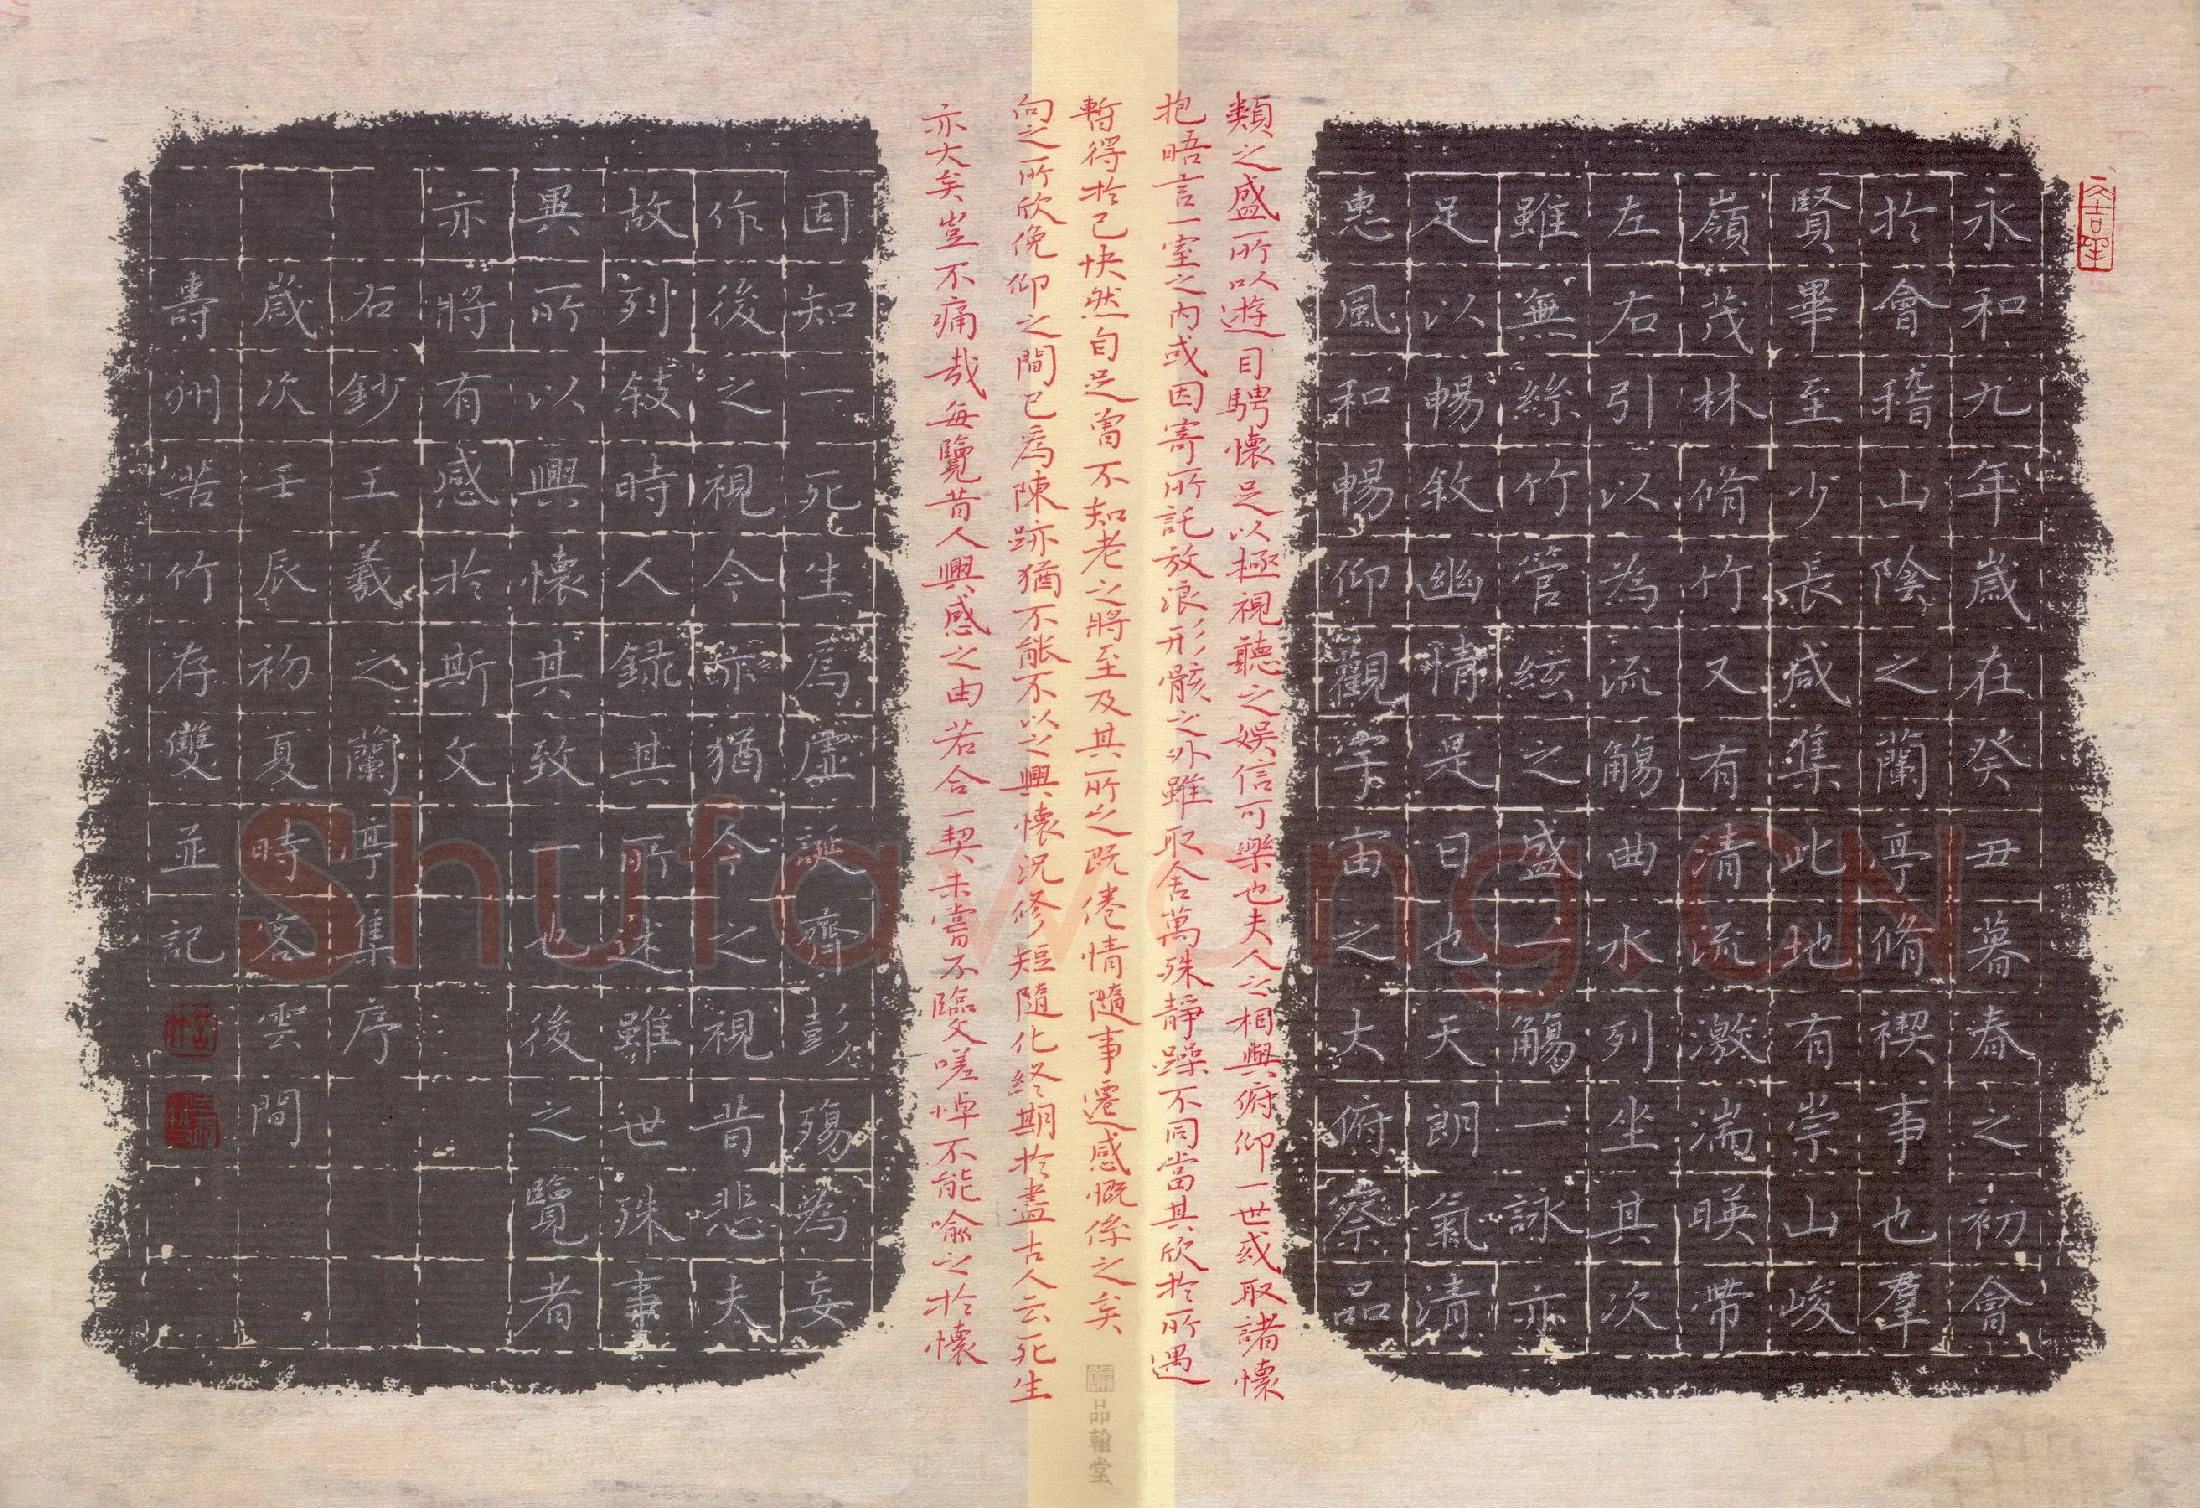 永和九年歲在癸丑暮春之初會
於會稽山陰之蘭亭脩禊事也羣
賢畢至少長咸集此地有崇山峻
嶺茂林脩竹又有清流激湍暎帶
左右引以為流觴曲水列坐其次
雖無絲竹管絃之盛一觴一詠亦
足以暢敘幽情是日也天朗氣清
惠風和暢仰觀宇宙之大俯察品
類之盛所以遊目騁懷足以極視聽之娛信可樂也夫人之相與俯仰一世或取諸懷
抱晤言一室之內或因寄所託放浪形骸之外雖取舍萬殊靜躁不同當其欣於所遇
暫得於己快然自足曾不知老之將至及其所之既倦情隨事遷感慨係之矣
向之所欣俛仰之間已為陳跡猶不能不以之興懷況修短隨化終期於盡古人云死生
亦大矣豈不痛哉每覽昔人興感之由若合一契未嘗不臨文嗟悼不能喻之於懷
固知一死生為虛誕齊彭殤為妄
作後之視今亦猶今之視昔悲夫
故列敍時人錄其所述雖世殊事
異所以興懷其致一也後之覽者
亦將有感於斯文
右鈔王羲之蘭亭集序
歲次壬辰初夏時客雲間
壽州苦竹存雙並記
品翰堂
Shufawang.CN